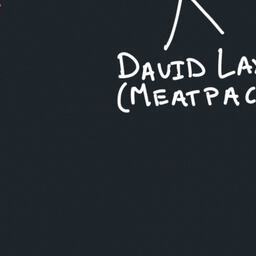 DAVID LA
(MEATPAC